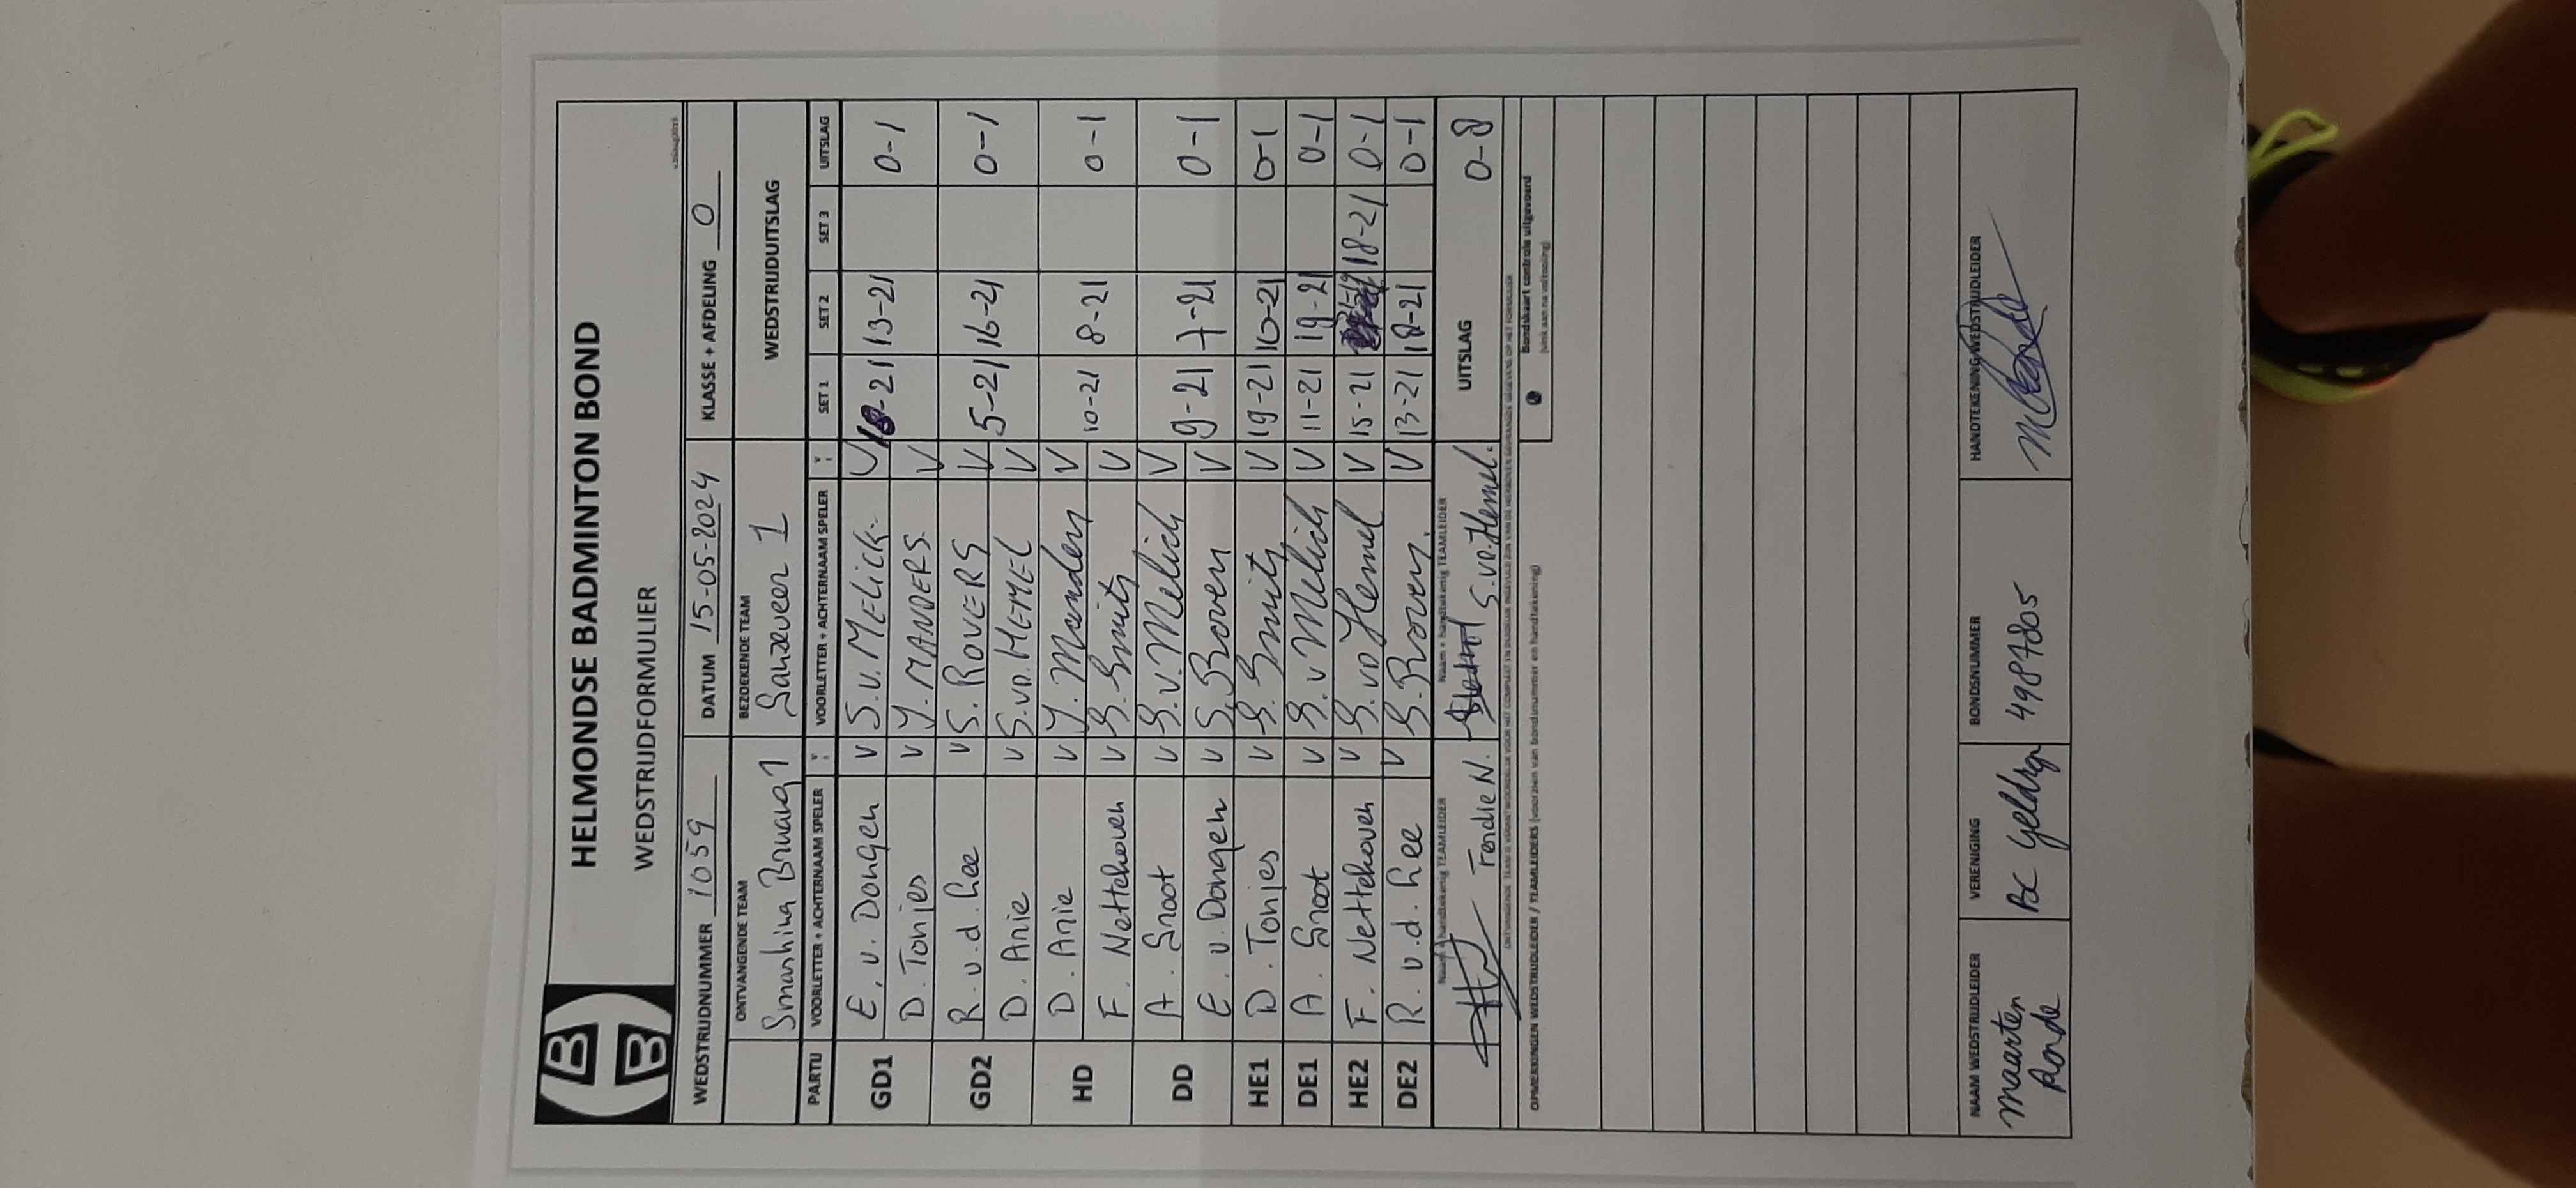 HELMONDSE BADMINTON BOND
WEDSTRIJDFORMULIER
WEDSTRIJDNUMMER 1059 DATUM 15-05-2024 KLASSE + AFDELING 0
ONTVANGENDE TEAM BEZOEKENDE TEAM WEDSTRIJDUITSLAG
Smashing 1 1
PARTIJ VOORLETTER + ACHTERNAAM SPELER V VOORLETTER + ACHTERNAAM SPELER V SET 1 SET 2 SET 3 UITSLAG
GD1 E. v. Dongen V S.v. MELICK V 18-21 13-21 0-1
D. Tonies V Y. MANDERS. V
GD2 R. v.d. Lee V S. ROVERS V 5-21 16-21 0-1
D. Arie V S.VD.HEMEL V
HD D. Arie V Y. Manders V 10-21 8-21 0-1
F. Nettehoven V G. Smits V
DD A. Groot V S.v. Melick V 9-21 7-21 0-1
E. v. Dongen V S. Rovers V
HE1 D. Tonies V G. Smits V 19-21 10-21 0-1
DE1 A. Groot V S. v Melick V 11-21 19-21 0-1
HE2 F. Nettehoven V S. vd Hemel V 15-21 18-21 0-1
DE2 R. v.d. Lee V S. Rovers. V 13-21 18-21 0-1
Naam + handtekenig TEAMLEIDER Naam + handtekenig TEAMLEIDER UITSLAG 0-8
Ferdie N. S.vd.Hemel.
OPMERKINGEN WEDSTRIJDLEIDER / TEAMLEIDERS (voorzien van bondsnummer en handtekening)
Bondskaart controle uitgevoerd
(vink aan na voltooiing)
NAAM WEDSTRIJDLEIDER VERENIGING BONDSNUMMER HANDTEKENING WEDSTRIJDLEIDER
Maarten BC Geldrop 4987805
Ronde